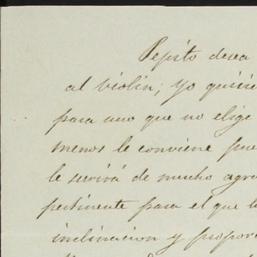 Pepito desea
al violin; yo quisie
para uno que no elige
menos le conviene pue
le servirá de mucho agra
pertinente para el que t
inclinacion y propor